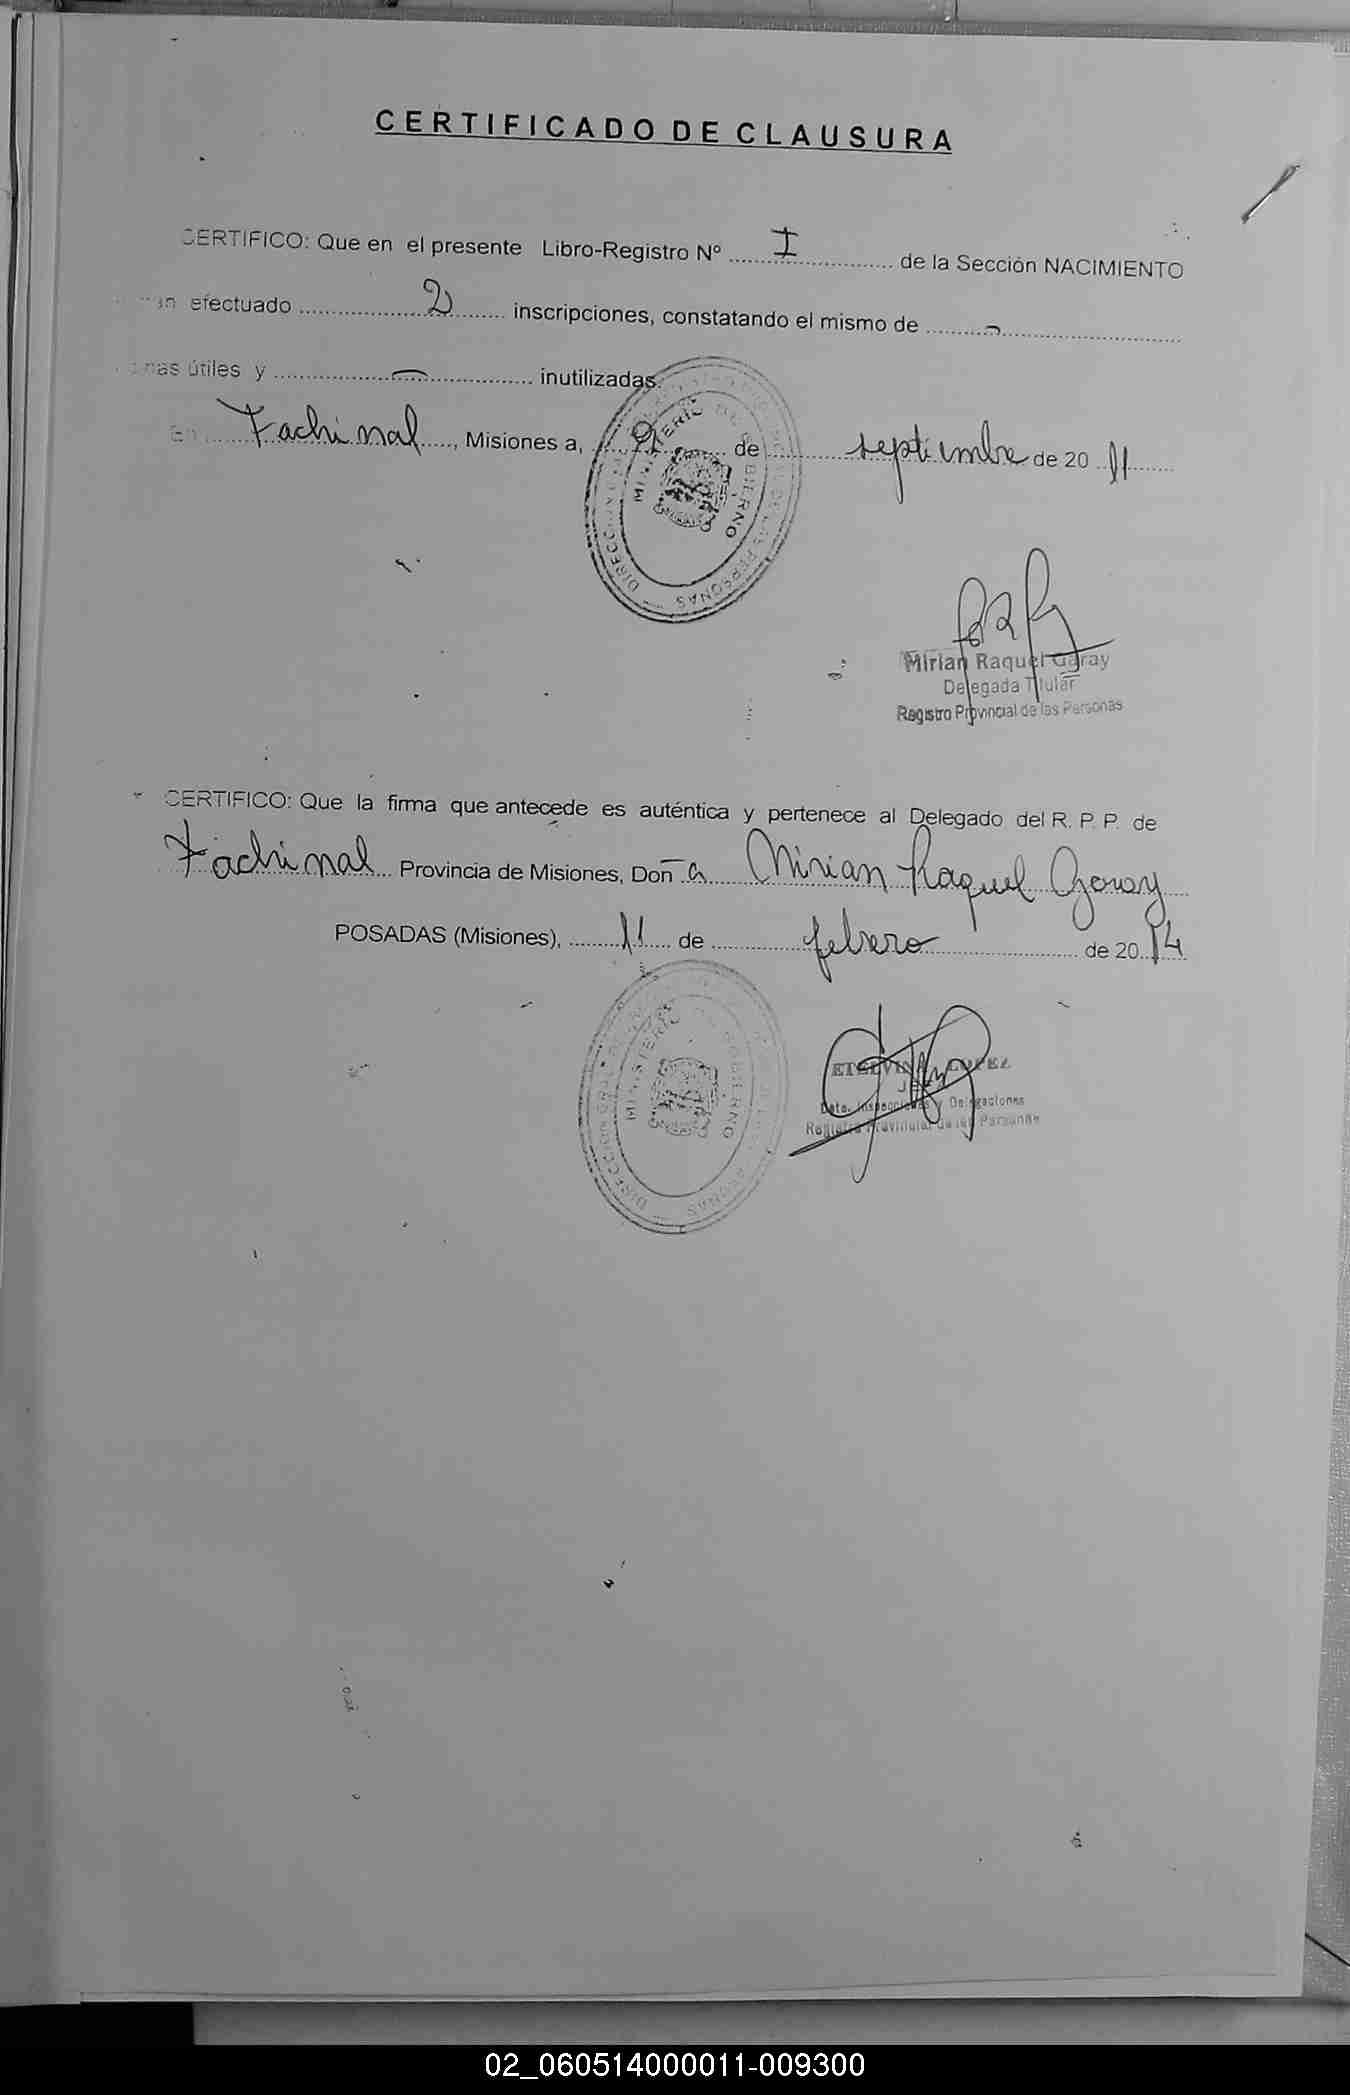 CERTIFICADO DE CLAUSURA
CERTIFICO: Que en el presente Libro-Registro Nº I de la Sección NACIMIENTO
efectuado 2 inscripciones, constatando el mismo de -
útiles y - inutilizadas.
En Fachinal, Misiones a, de septiembre de 2011
MINISTERIO DE GOBIERNO
DIRECCION DE LAS PERSONAS
Mirian Raquel Garay
Delegada Titular
Registro Provincial de las Personas
CERTIFICO: Que la firma que antecede es auténtica y pertenece al Delegado del R. P. P. de
Fachinal Provincia de Misiones, Doña Mirian Raquel Garay
POSADAS (Misiones), 11 de febrero de 2014
MINISTERIO DE GOBIERNO
DIRECCION
ETELVINA LOPEZ
Dpto. Inspecciones y Delegaciones
Registro Provincial de las Personas
02_060514000011-009300